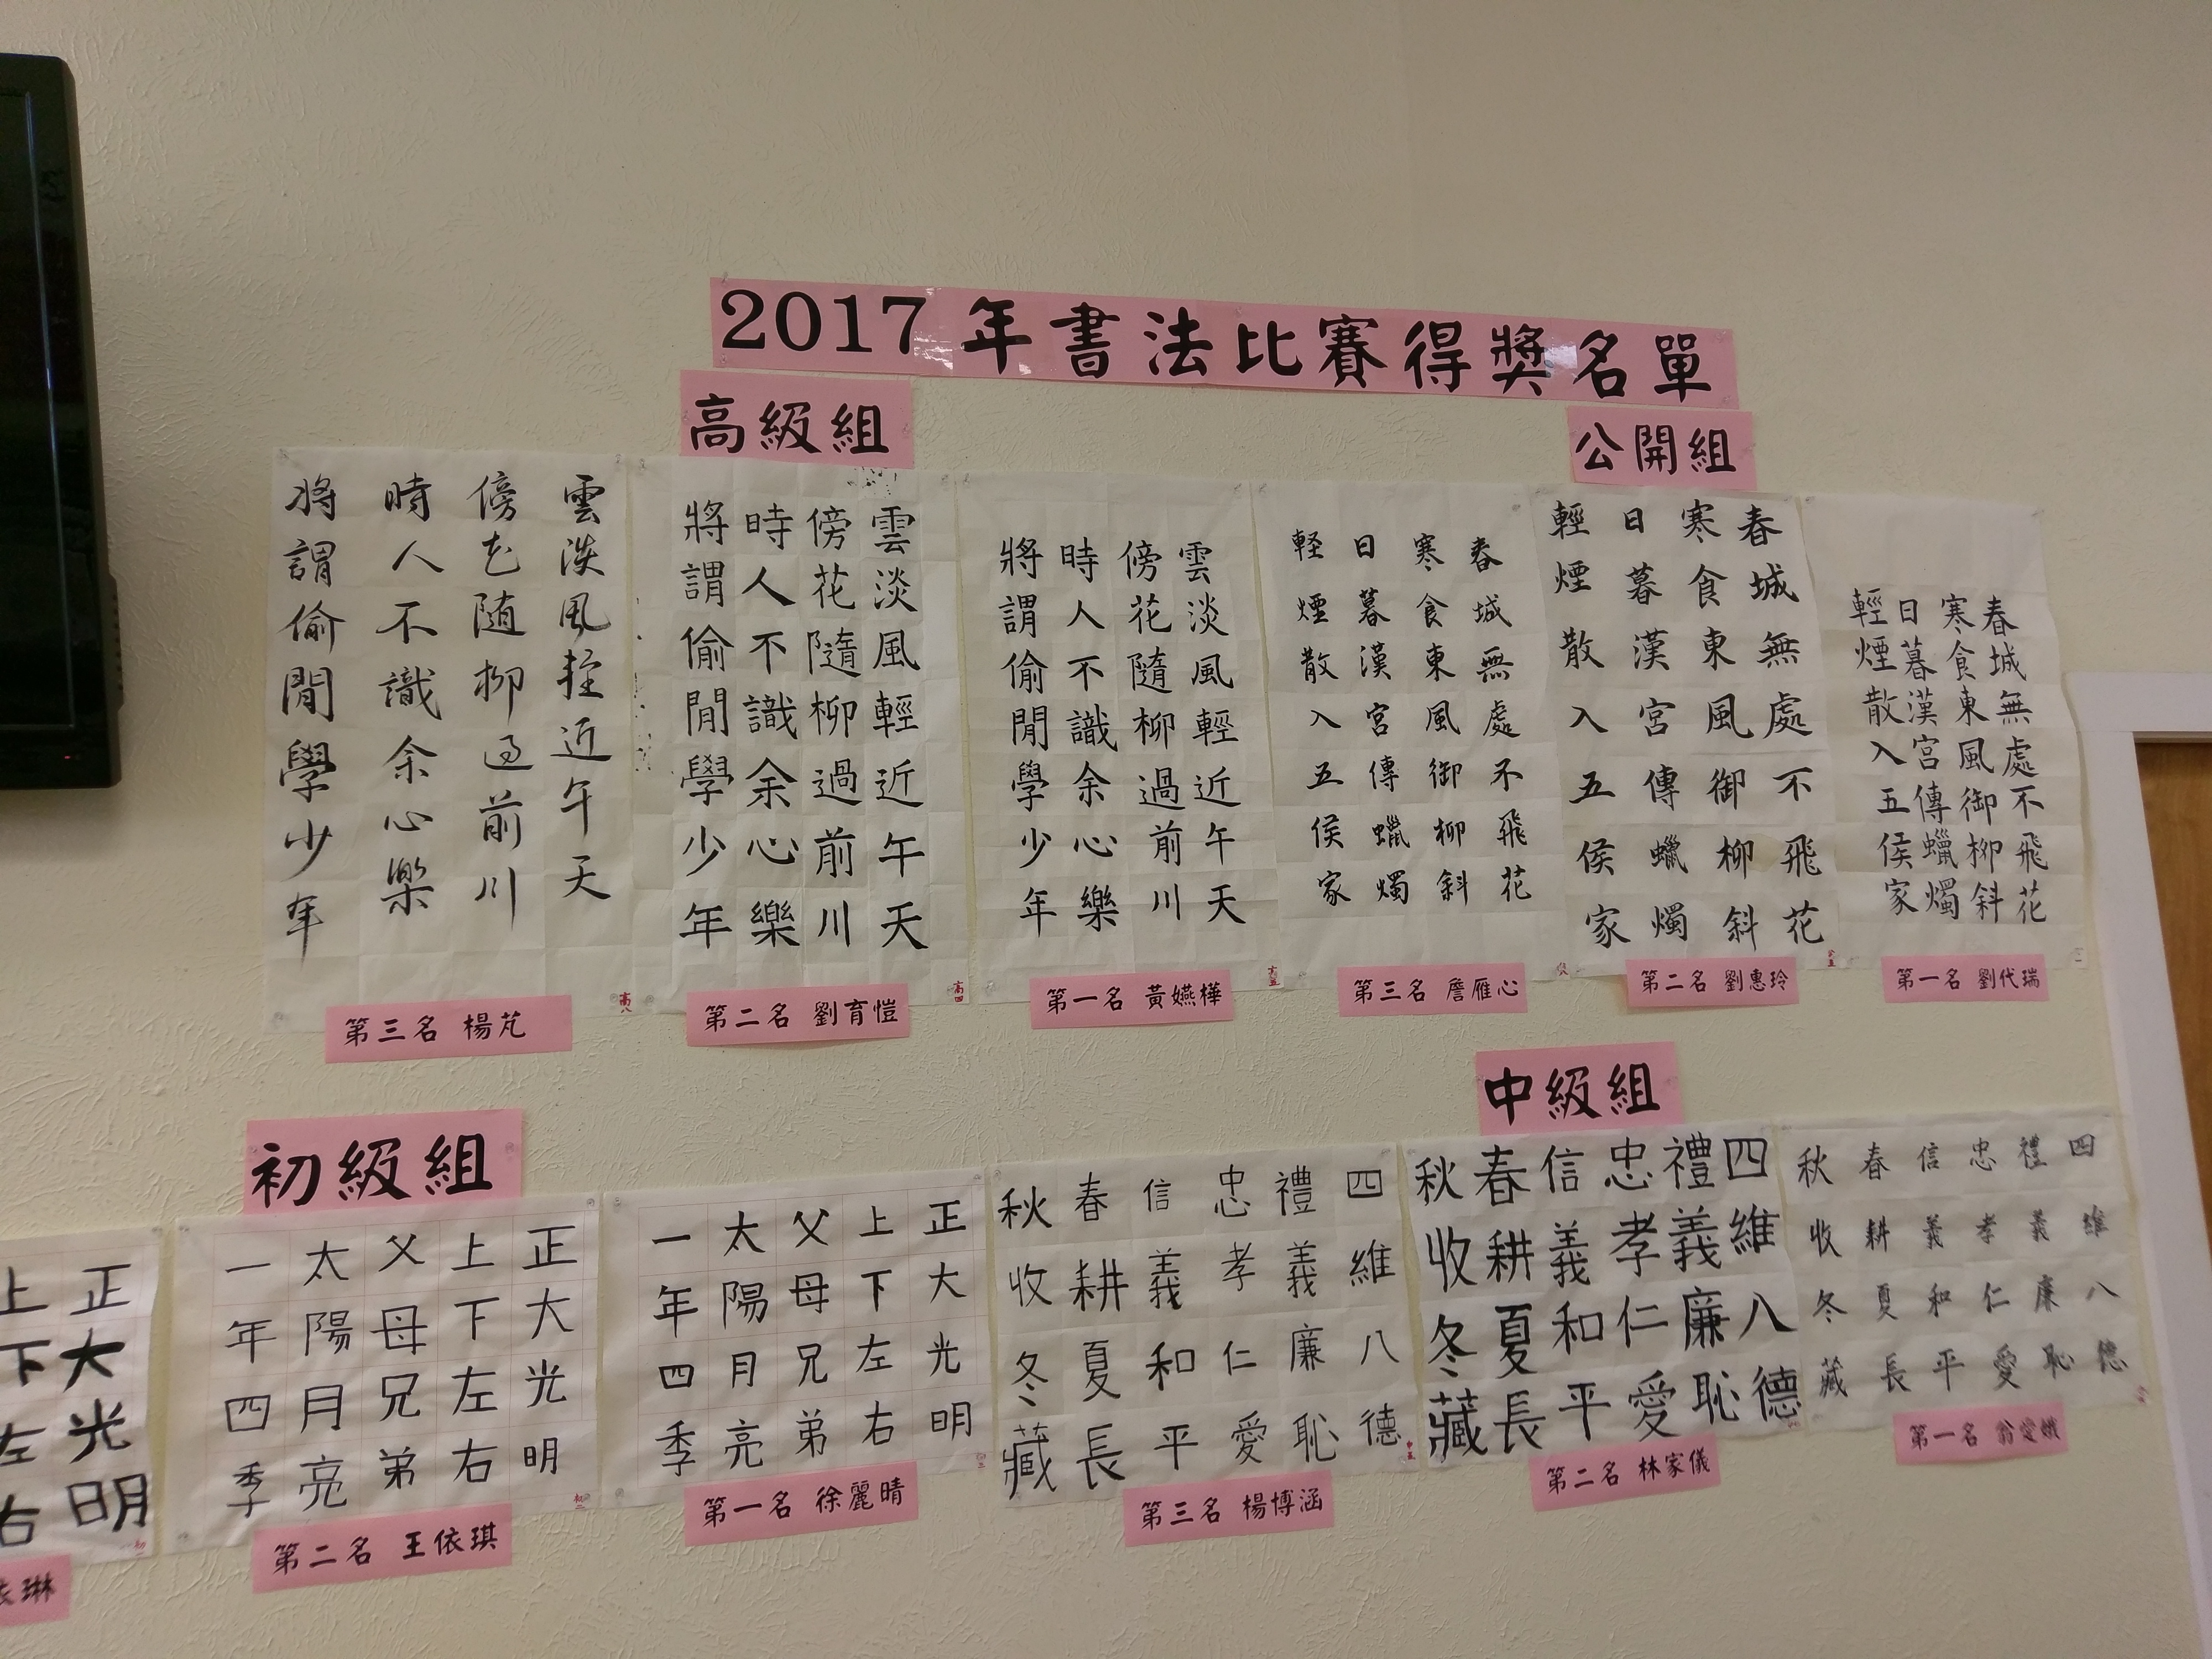 2017年書法比賽得獎名單
高級組
公開組
雲淡風輕近午天
傍花随柳过前川
時人不識余心樂
將謂偷閒學少年
高八
第三名 楊芃
雲淡風輕近午天
傍花隨柳過前川
時人不識余心樂
將謂偷閒學少年
高四
第二名 劉育愷
雲淡風輕近午天
傍花隨柳過前川
時人不識余心樂
將謂偷閒學少年
高五
第一名 黃嬿樺
春城無處不飛花
寒食東風御柳斜
日暮漢宮傳蠟燭
輕煙散入五侯家
第三名 詹雁心
春城無處不飛花
寒食東風御柳斜
日暮漢宮傳蠟燭
輕煙散入五侯家
公五
第二名 劉惠玲
春城無處不飛花
寒食東風御柳斜
日暮漢宮傳蠟燭
輕煙散入五侯家
第一名 劉代瑞
初級組
中級組
正大光明
上下左右
初一
依琳
正大光明
上下左右
父母兄弟
太陽月亮
一年四季
初二
第二名 王依琪
正大光明
上下左右
父母兄弟
太陽月亮
一年四季
第一名 徐麗晴
四維八德
禮義廉恥
忠孝仁愛
信義和平
春耕夏長
秋收冬藏
中五
第三名 楊博涵
四維八德
禮義廉恥
忠孝仁愛
信義和平
春耕夏長
秋收冬藏
第二名 林家儀
四維八德
禮義廉恥
忠孝仁愛
信義和平
春耕夏長
秋收冬藏
第一名 翁愛娥